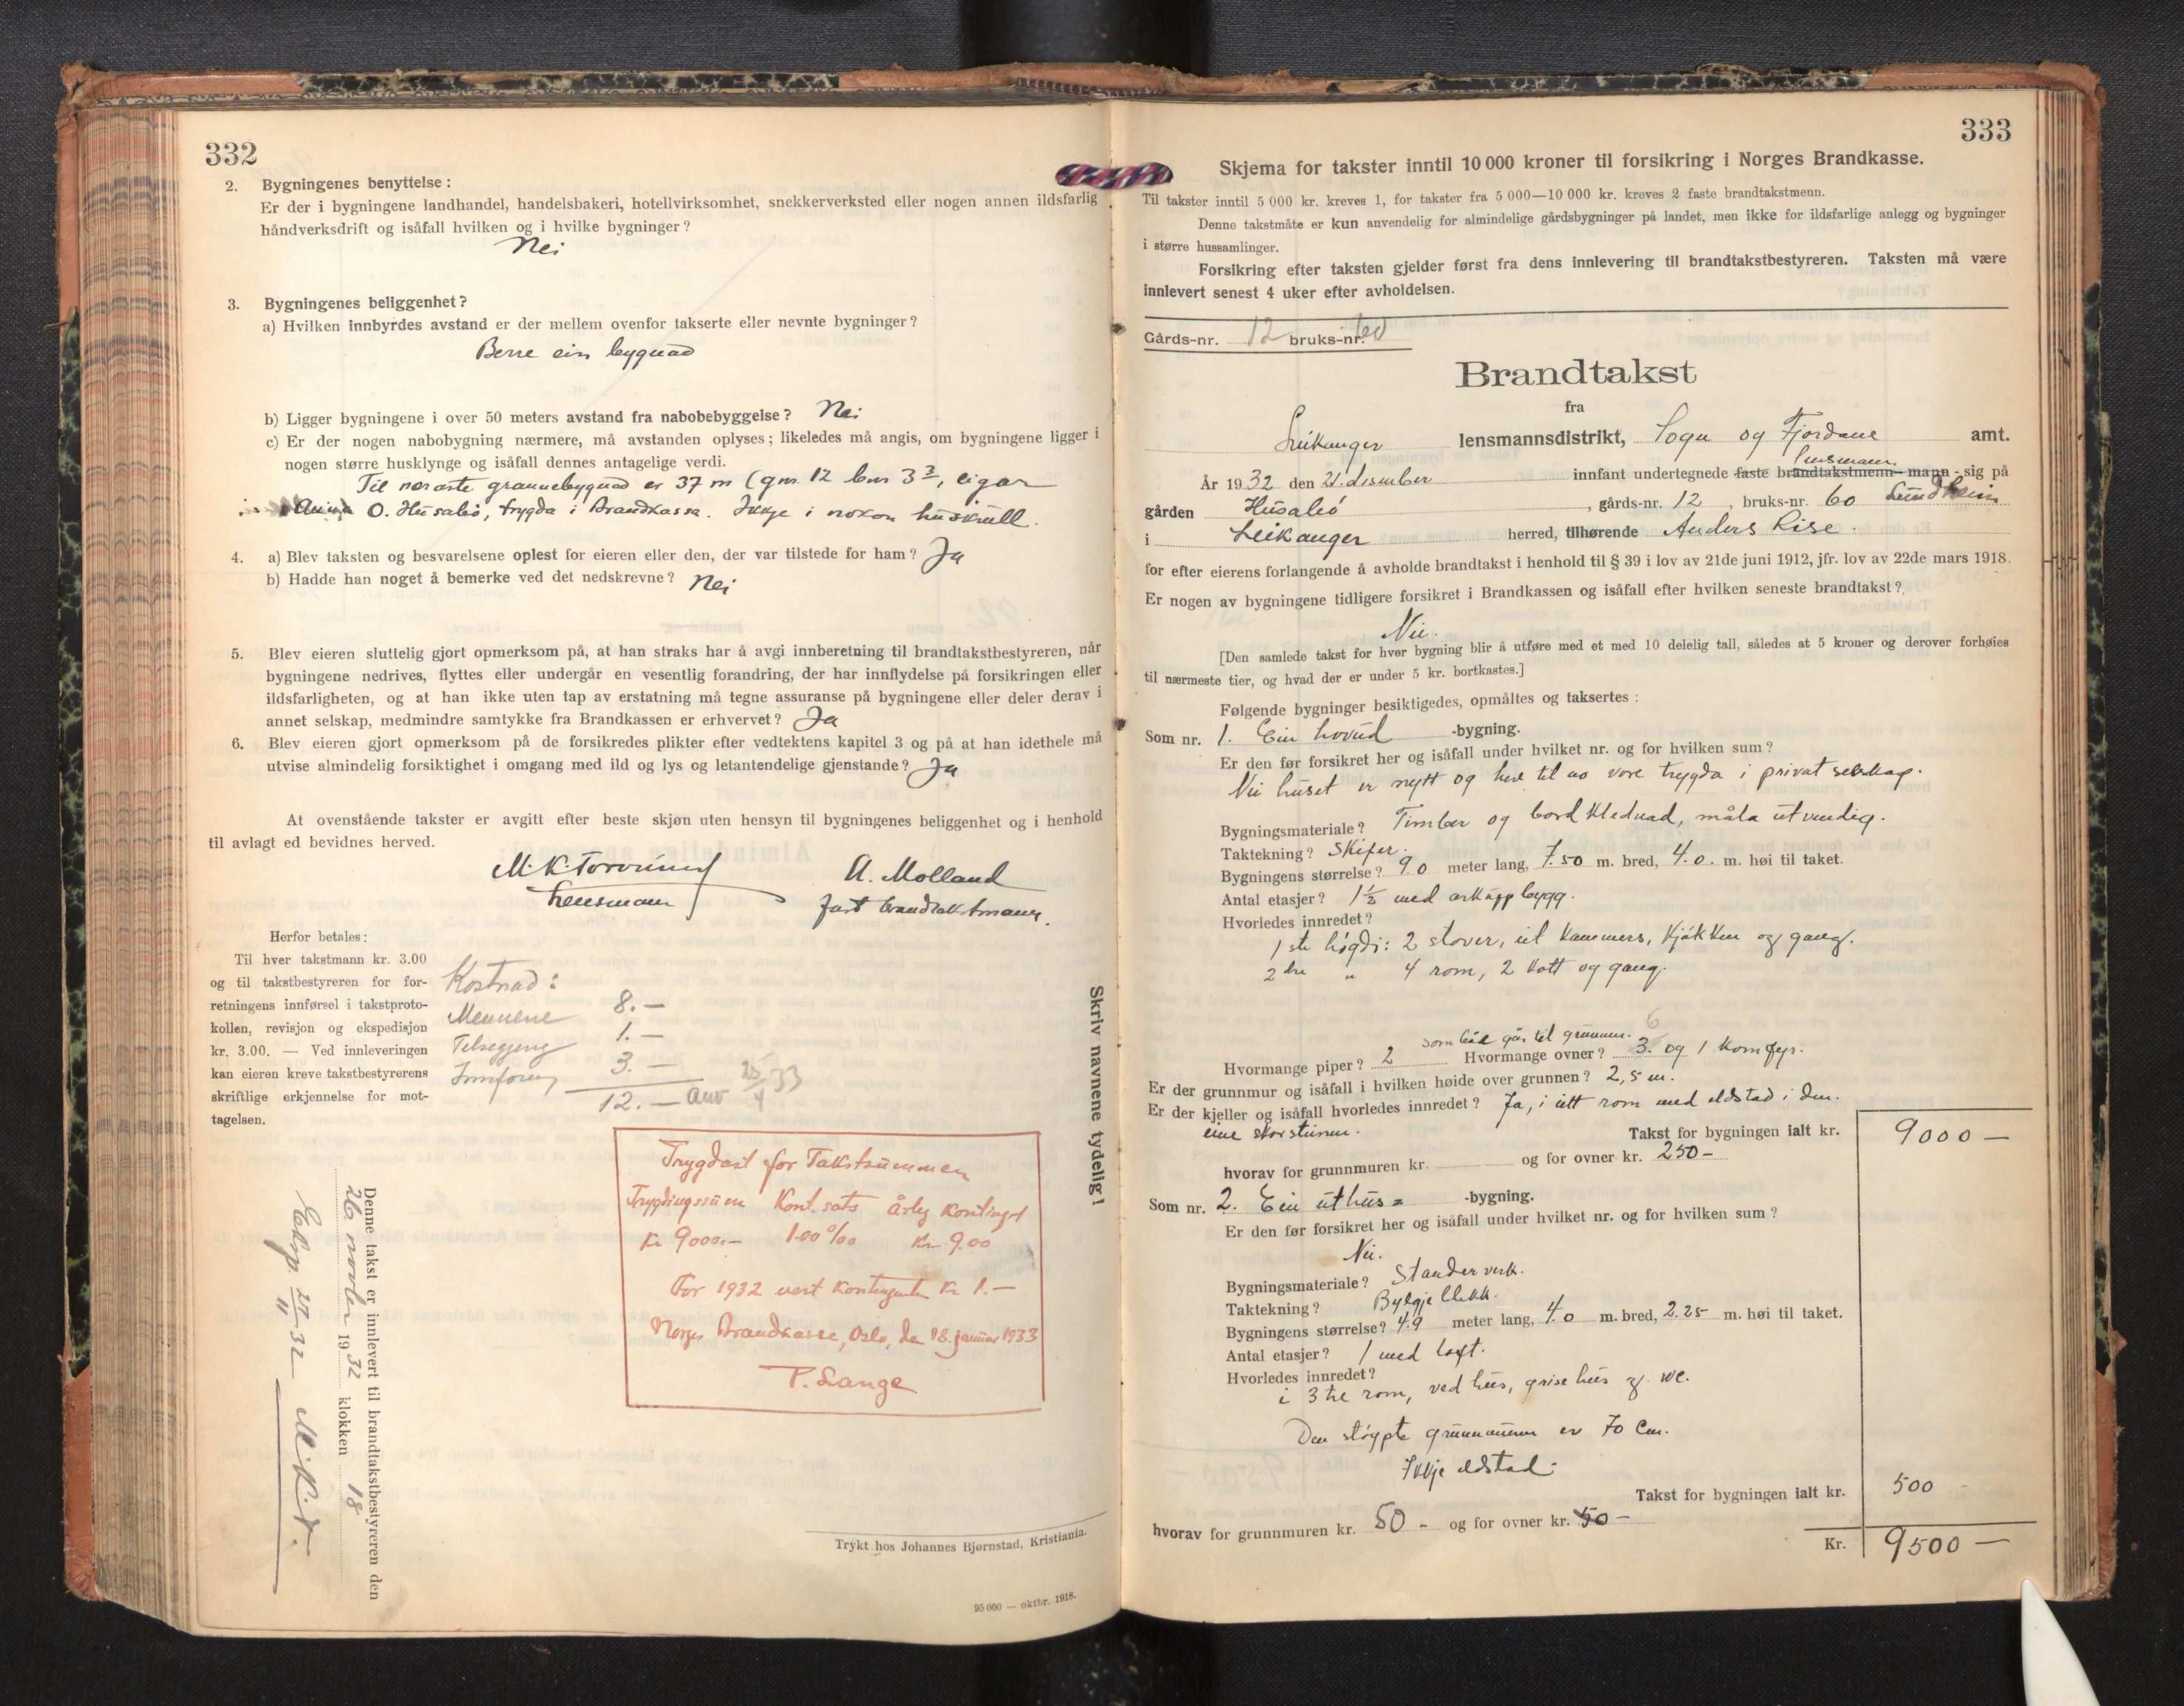 332
2. Bygningenes benyttelse:
Er der i bygningene landhandel, handelsbakeri, hotellvirksomhet, snekkerverksted eller nogen annen ildsfarlig
håndverksdrift og isåfall hvilken og i hvilke bygninger?
Nei
3. Bygningenes beliggenhet?
a) Hvilken innbyrdes avstand er der mellem ovenfor takserte eller nevnte bygninger?
Berre ein bygnad
b) Ligger bygningene i over 50 meters avstand fra nabobebyggelse? Nei
c) Er der nogen nabobygning nærmere, må avstanden oplyses; likeledes må angis, om bygningene ligger i
nogen større husklynge og isåfall dennes antagelige verdi.
Til næraste grannebygnad er 37 m (gnr. 12 bnr 3³, eigar
Anna O. Husabö, trygda i Brandkassa. Ikkje i nokon huskrull.
4. a) Blev taksten og besvarelsene oplest for eieren eller den, der var tilstede for ham? Ja
b) Hadde han noget å bemerke ved det nedskrevne? Nei
5. Blev eieren sluttelig gjort opmerksom på, at han straks har å avgi innberetning til brandtakstbestyreren, når
bygningene nedrives, flyttes eller undergår en vesentlig forandring, der har innflydelse på forsikringen eller
ildsfarligheten, og at han ikke uten tap av erstatning må tegne assuranse på bygningene eller deler derav i
annet selskap, medmindre samtykke fra Brandkassen er erhvervet? Ja
6. Blev eieren gjort opmerksom på de forsikredes plikter efter vedtektens kapitel 3 og på at han idethele må
utvise almindelig forsiktighet i omgang med ild og lys og letantendelige gjenstande? Ja
At ovenstående takster er avgitt efter beste skjøn uten hensyn til bygningenes beliggenhet og i henhold
til avlagt ed bevidnes herved.
M.K. Torvund A. Molland
Lensmann fast brandtakstmann.
Herfor betales:
Til hver takstmann kr. 3.00
og til takstbestyreren for for-
retningens innførsel i takstproto-
kollen, revisjon og ekspedisjon
kr. 3.00. — Ved innleveringen
kan eieren kreve takstbestyrerens
skriftlige erkjennelse for mot-
tagelsen.
Kostnad:
Mennene 8.—
Tilsegjing 1.—
Innföring 3.—
12.— anv 25/4 33
Trygdast for Takstsummen
Trygdingssum Kont. sats årleg Kontingent
Kr 9000.— 1.00 ‰ Kr. 9.00
For 1932 vert Kontingenten Kr 1.—
Norges Brandkasse, Oslo, den 18. januar 1933
P. Lange
Denne takst er innlevert til brandtakstbestyreren den
26 novbr 1932 klokken 18
Eksp. 27/11-32 M.K.T.
Skriv navnene tydelig!
Trykt hos Johannes Bjørnstad, Kristiania.
95 000 — oktbr. 1918.
333
Skjema for takster inntil 10 000 kroner til forsikring i Norges Brandkasse.
Til takster inntil 5 000 kr. kreves 1, for takster fra 5 000—10 000 kr. kreves 2 faste brandtakstmenn.
Denne takstmåte er kun anvendelig for almindelige gårdsbygninger på landet, men ikke for ildsfarlige anlegg og bygninger
i større hussamlinger.
Forsikring efter taksten gjelder først fra dens innlevering til brandtakstbestyreren. Taksten må være
innlevert senest 4 uker efter avholdelsen.
Gårds-nr. 12 bruks-nr. 60
Brandtakst
fra
Leikanger lensmannsdistrikt, Sogn og Fjordane amt.
lensmann
År 1932 den 21. desember innfant undertegnede faste brandtakstmenn mann sig på
gården Husabö, gårds-nr. 12, bruks-nr. 60 Sundheim
i Leikanger herred, tilhørende Anders Lise.
for efter eierens forlangende å avholde brandtakst i henhold til § 39 i lov av 21de juni 1912, jfr. lov av 22de mars 1918.
Er nogen av bygningene tidligere forsikret i Brandkassen og isåfall efter hvilken seneste brandtakst?
Nei.
[Den samlede takst for hver bygning blir å utføre med et med 10 delelig tall, således at 5 kroner og derover forhøies
til nærmeste tier, og hvad der er under 5 kr. bortkastes.]
Følgende bygninger besiktigedes, opmåltes og taksertes:
Som nr. 1. Ein hovud -bygning.
Er den før forsikret her og isåfall under hvilket nr. og for hvilken sum?
Nei huset er nytt og heve til no vore trygda i privat selskap.
Bygningsmateriale? Timber og bordklednad, måla utvendig.
Taktekning? Skifer.
Bygningens størrelse? 9.0 meter lang, 7.50 m. bred, 4.0. m. høi til taket.
Antal etasjer? 1½ med arkuppbygg.
Hvorledes innredet?
1ste högdi: 2 stover, eit kammers, kjökken og gang.
2dre " 4 rom, 2 kott og gang.
som båe går til grunnen. 6
Hvormange piper? 2 Hvormange ovner? 3. og 1 komfyr.
Er der grunnmur og isåfall i hvilken høide over grunnen? 2,5 m.
Er der kjeller og isåfall hvorledes innredet? Ja, i eitt rom med eldstad i den.
eine skorsteinen.
Takst for bygningen ialt kr. 9000 —
hvorav for grunnmuren kr. og for ovner kr. 250 —
Som nr. 2. Ein uthus= -bygning.
Er den før forsikret her og isåfall under hvilket nr. og for hvilken sum?
Nei.
Bygningsmateriale? Standerverk.
Taktekning? Bylgjeblikk.
Bygningens størrelse? 4.9 meter lang, 4.0 m. bred, 2.25 m. høi til taket.
Antal etasjer? 1 med loft.
Hvorledes innredet?
i 3 tre rom, vedhus, grisehus og wc.
Den stöypte grunnmuren er 70 Cm.
Ikkje eldstad.
Takst for bygningen ialt kr. 500 —
hvorav for grunnmuren kr. 50 — og for ovner kr. 50 —
Kr. 9500 —